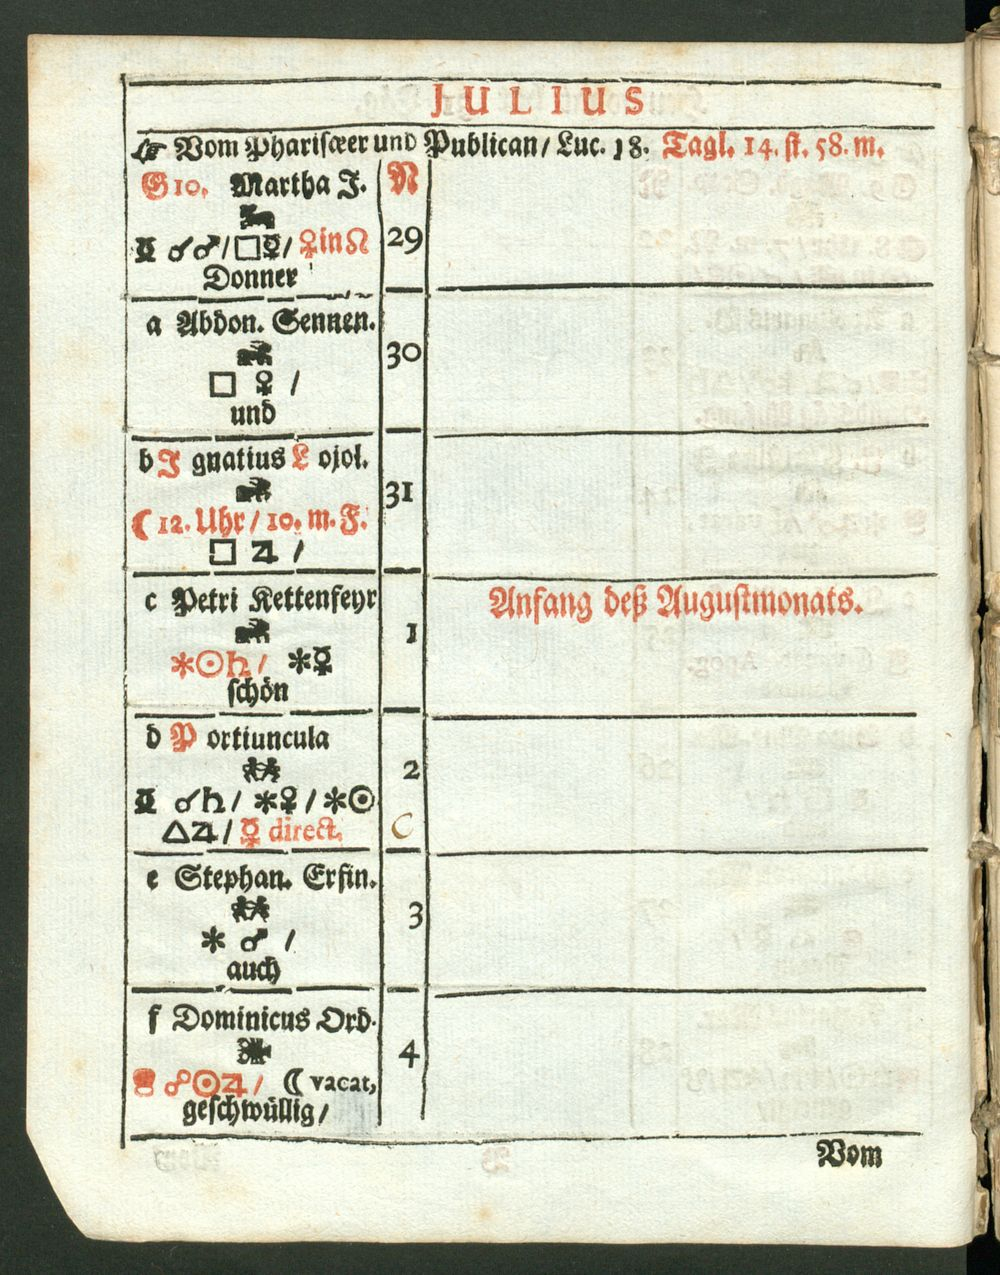 JULIUS
☞ Vom Phariſæer und Publican / Luc. 18. Tagl. 14. ſt. 58. m.
G 10. Martha J. N
☌♂/□☿/ ♀in♌ 29
Donner
a Abdon. Sennen.
30
□ ♀ /
und
b Ignatius Lojol.
31
☾ 12. Uhr / 10. m. F.
□ ♃ /
c Petri Kettenfeyr Anfang deß Auguſtmonats.
1
✶☉♄/ ✶☿
ſchön
d Portiuncula
2
☌♄/ ✶♀/✶☉
△♃/ ☿ direct. C
e Stephan. Erfin.
3
✶ ♂ /
auch
f Dominicus Ord.
4
☍☉♃/ ☾ vacat,
geſchwüllig /
Vom